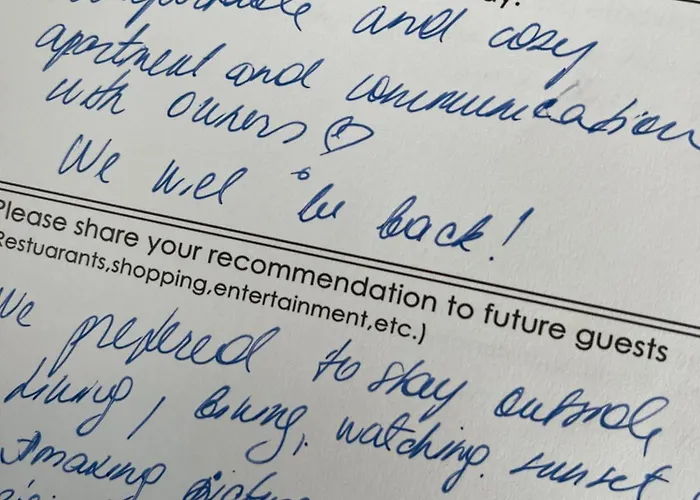 and cosy
apartment and communication
with owners
We will be back!
Please share your recommendation to future guests
Restuarants,shopping,entertainment,etc.)
We prefered to stay outside
dining, watching sunset
Amazing